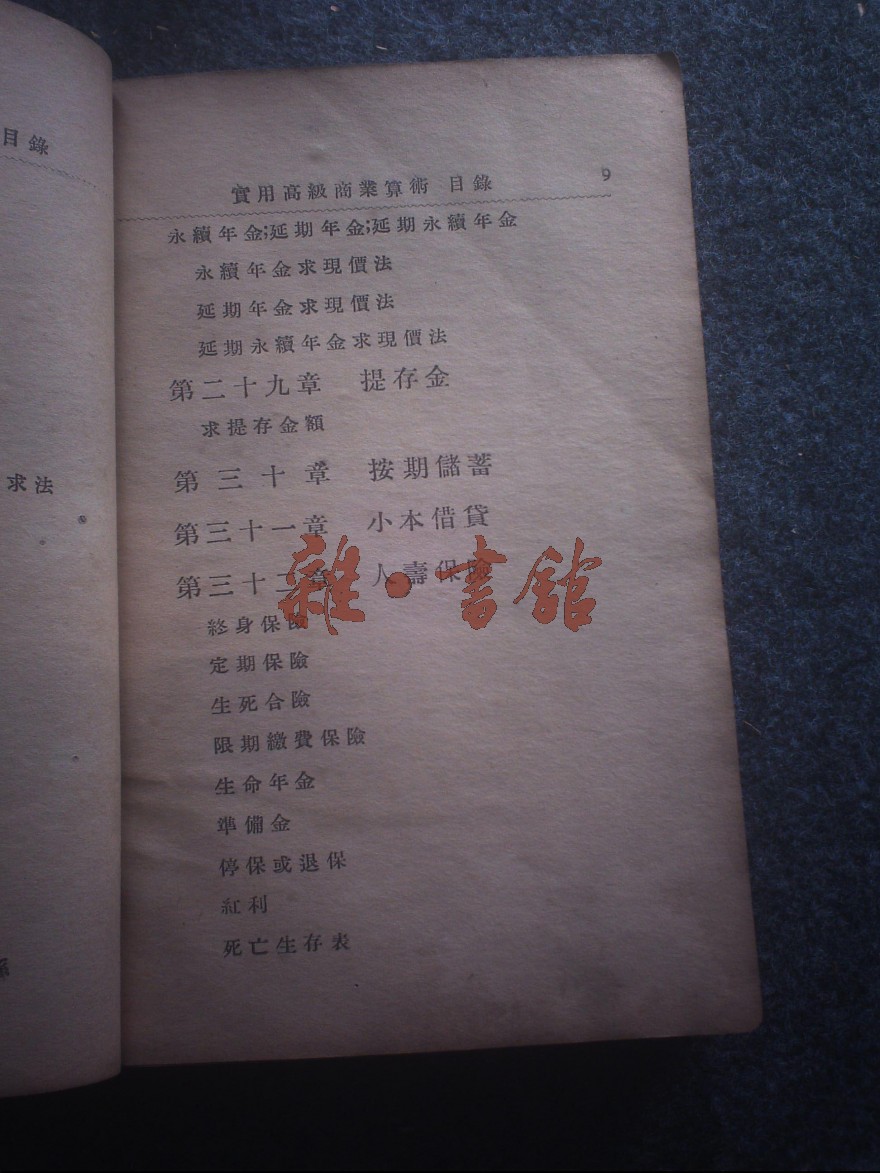 目錄
求法
實用高級商業算術 目錄 9
永續年金;延期年金;延期永續年金
永續年金求現價法
延期年金求現價法
延期永續年金求現價法
第二十九章 提存金
求提存金額
第三十章 按期儲蓄
第三十一章 小本借貸
第三十二章 人壽保險
雜·書館
終身保險
定期保險
生死合險
限期繳費保險
生命年金
準備金
停保或退保
紅利
死亡生存表